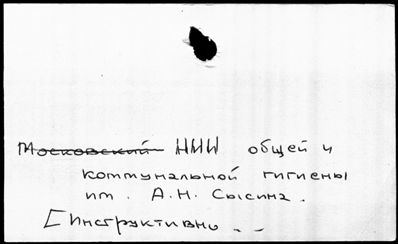 Московский НИИ общей и
коммунальной гигиены
им. А.Н. Сысина.
[Инструктивно - -